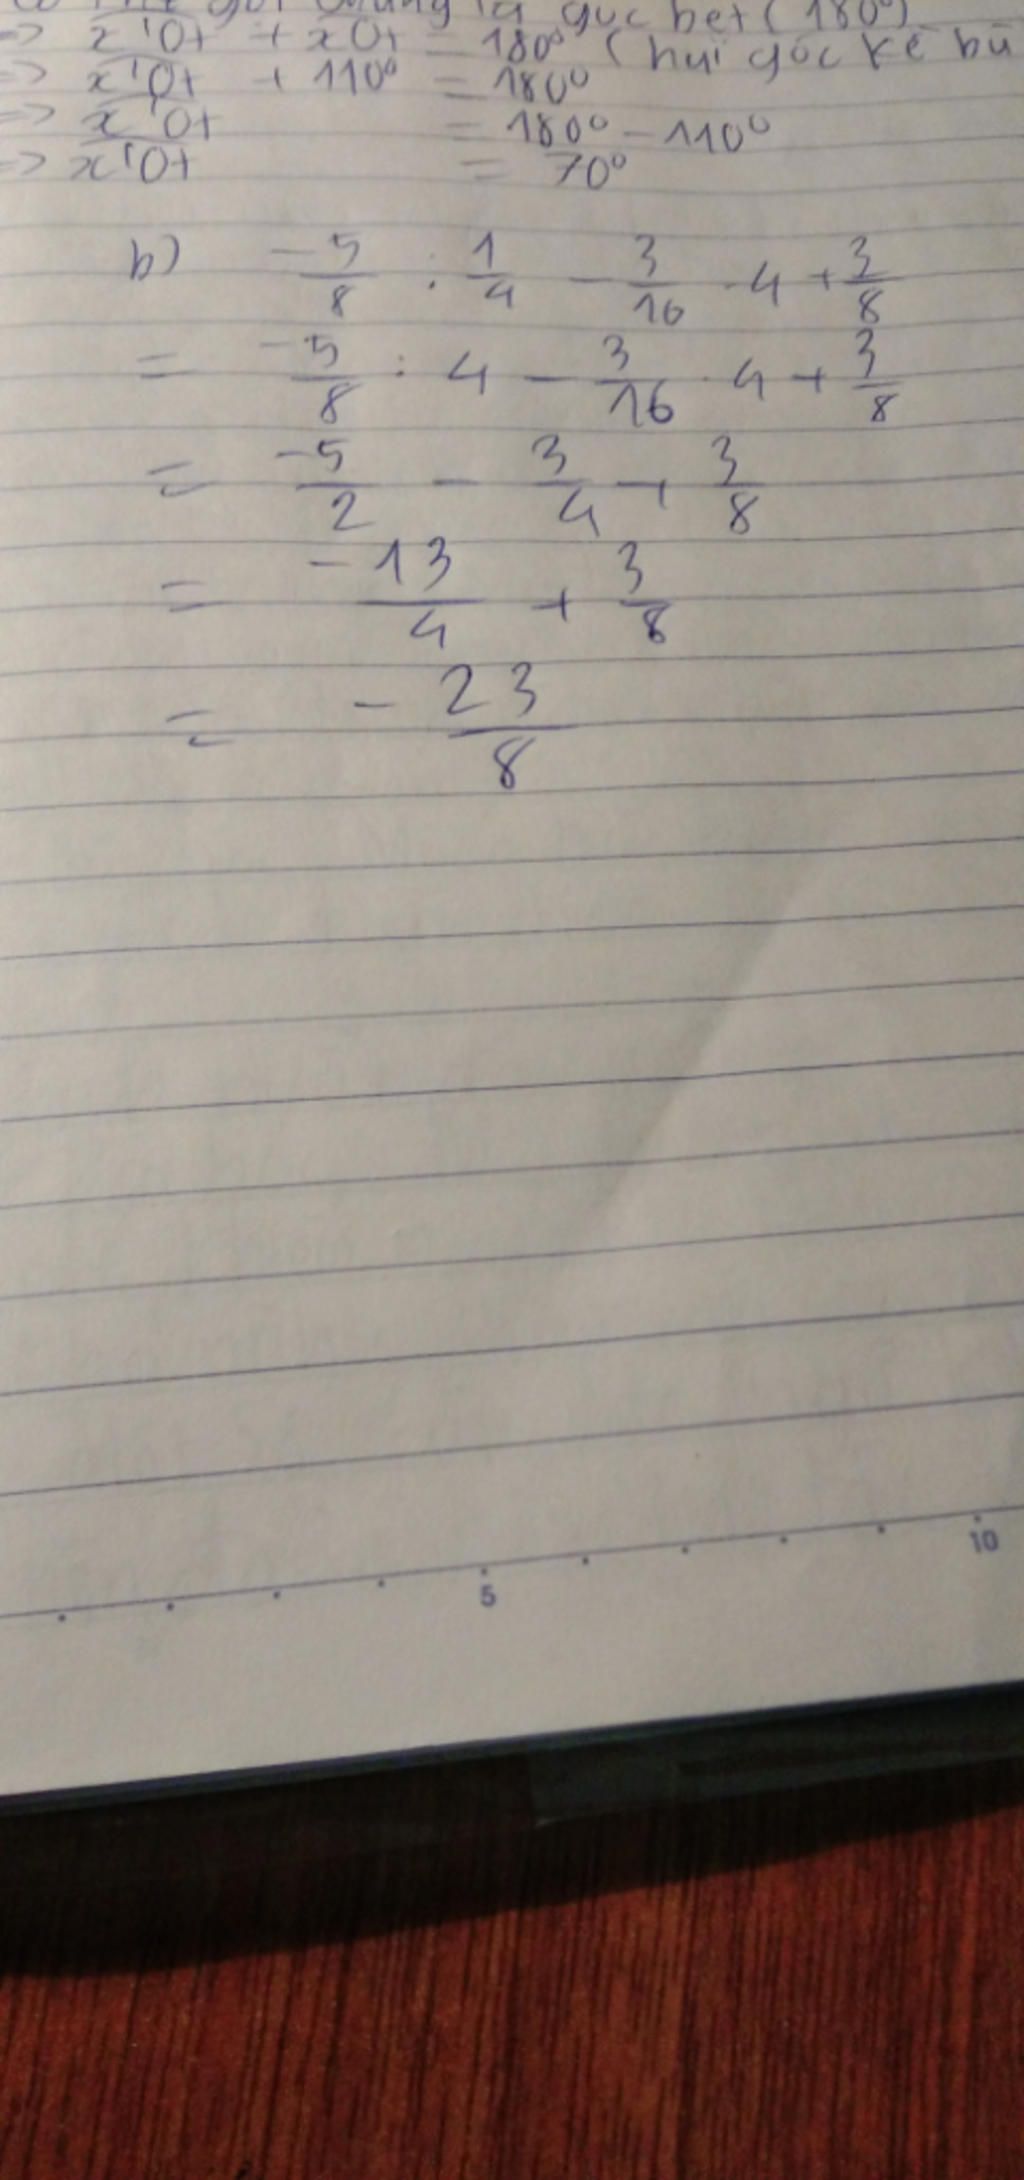 góc bẹt (180°)
=> x'Ot + xOt = 180° (hai góc kề bù
=> x'Ot + 110° = 180°
=> x'Ot = 180° - 110°
=> x'Ot = 70°
b) -5/8 : 1/4 - 3/16 . 4 + 3/8
= -5/8 : 4 - 3/16 . 4 + 3/8
= -5/2 - 3/4 + 3/8
= -13/4 + 3/8
= -23/8
5 10